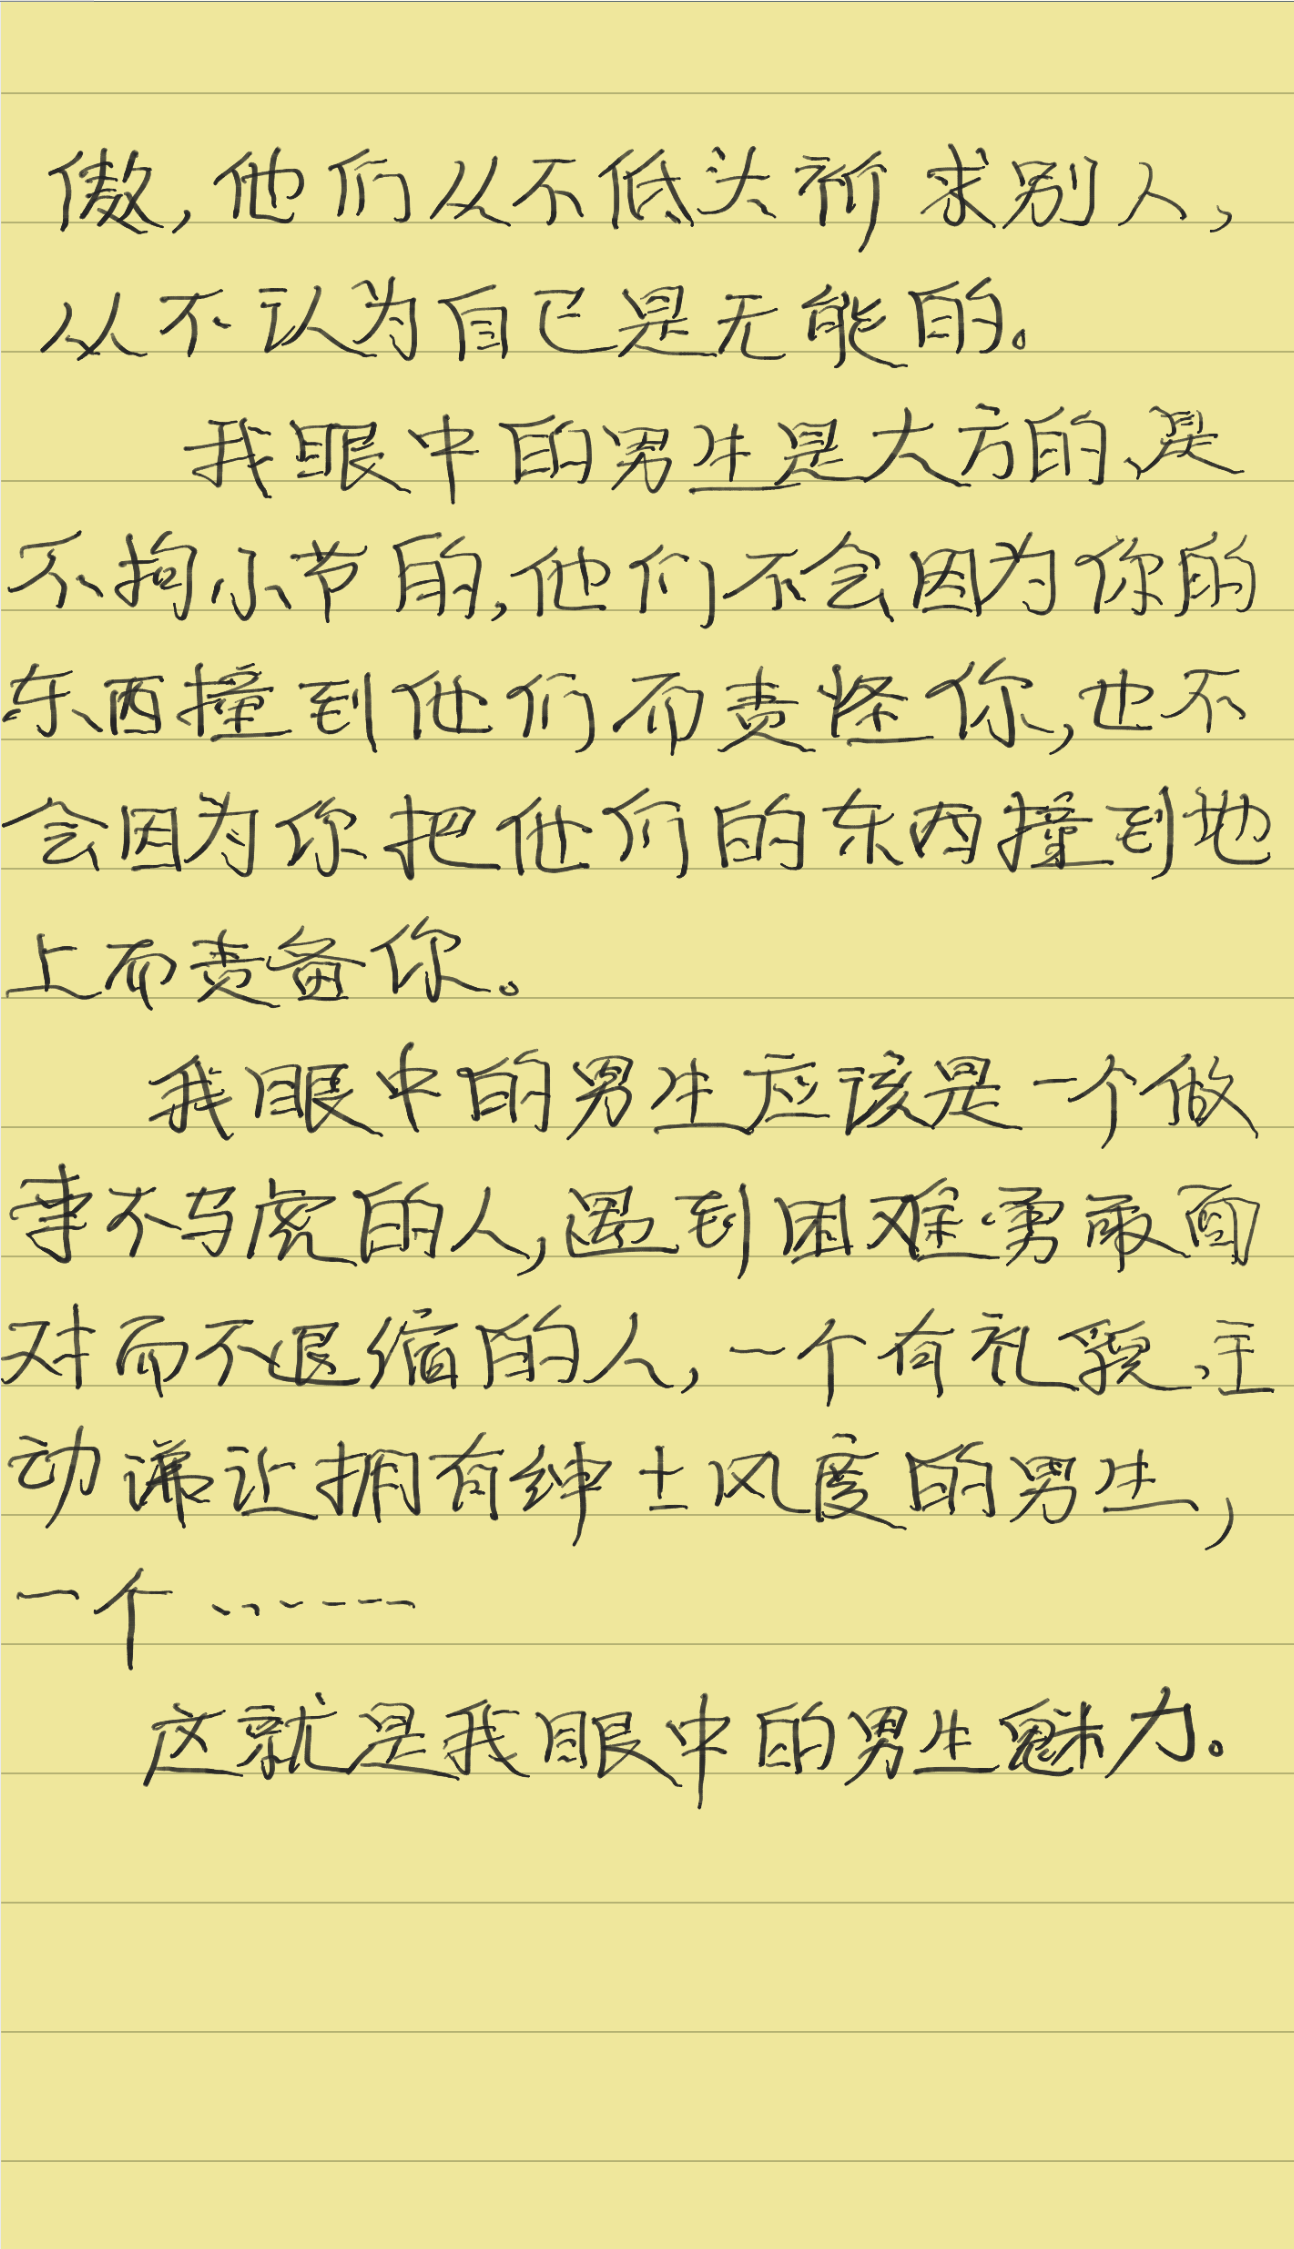 傲,他们从不低头祈求别人,
从不认为自己是无能的。
我眼中的男生是大方的、是
不拘小节的,他们不会因为你的
东西撞到他们而责怪你,也不
会因为你把他们的东西撞到地
上而责备你。
我眼中的男生应该是一个做
事不马虎的人,遇到困难勇敢面
对而不退缩的人,一个有礼貌、主
动谦让拥有绅士风度的男生,
一个……
这就是我眼中的男生魅力。